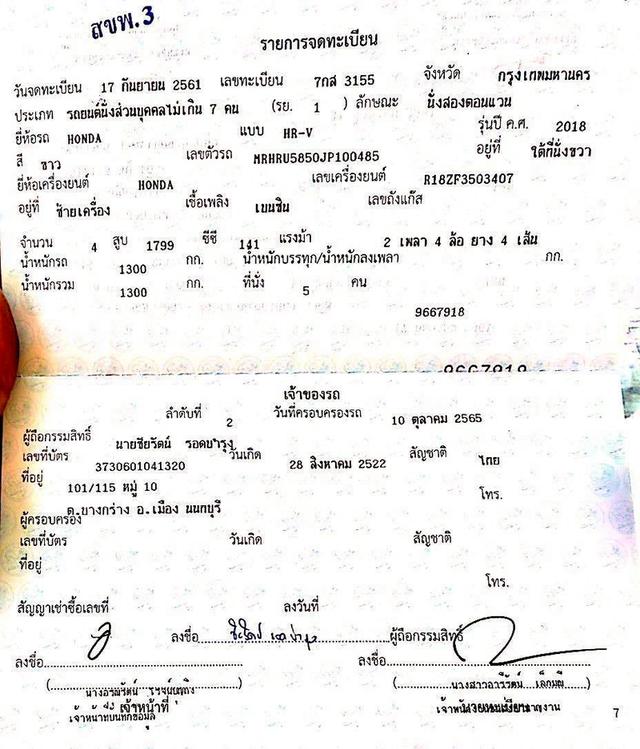 สขพ.3
รายการจดทะเบียน
วันจดทะเบียน 17 กันยายน 2561 เลขทะเบียน 7กส 3155 จังหวัด กรุงเทพมหานคร
ประเภท รถยนต์นั่งส่วนบุคคลไม่เกิน 7 คน (รย. 1 ) ลักษณะ นั่งสองตอนแวน
ยี่ห้อรถ HONDA แบบ HR-V รุ่นปี ค.ศ. 2018
สี ขาว เลขตัวรถ MRHRU5850JP100485 อยู่ที่ ใต้ที่นั่งขวา
ยี่ห้อเครื่องยนต์ HONDA เลขเครื่องยนต์ R18ZF3503407
อยู่ที่ ซ้ายเครื่อง เชื้อเพลิง เบนซิน เลขถังแก๊ส
จำนวน 4 สูบ 1799 ซีซี 141 แรงม้า 2 เพลา 4 ล้อ ยาง 4 เส้น
น้ำหนักรถ 1300 กก. น้ำหนักบรรทุก/น้ำหนักลงเพลา กก.
น้ำหนักรวม 1300 กก. ที่นั่ง 5 คน
9667918
9667918
เจ้าของรถ
ลำดับที่ 2 วันที่ครอบครองรถ 10 ตุลาคม 2565
ผู้ถือกรรมสิทธิ์ นายชัยรัตน์ รอดบำรุง
เลขที่บัตร 3730601041320 วันเกิด 28 สิงหาคม 2522 สัญชาติ ไทย
ที่อยู่ 101/115 หมู่ 10 โทร.
ต.บางกร่าง อ.เมือง นนทบุรี
ผู้ครอบครอง
เลขที่บัตร วันเกิด สัญชาติ
ที่อยู่
โทร.
สัญญาเช่าซื้อเลขที่ ลงวันที่
ลงชื่อ ผู้ถือกรรมสิทธิ์
ลงชื่อ ลงชื่อ
นางสาวอารีรัตน์
เจ้าหน้าที่
เจ้าหน้าที่บันทึกข้อมูล
7